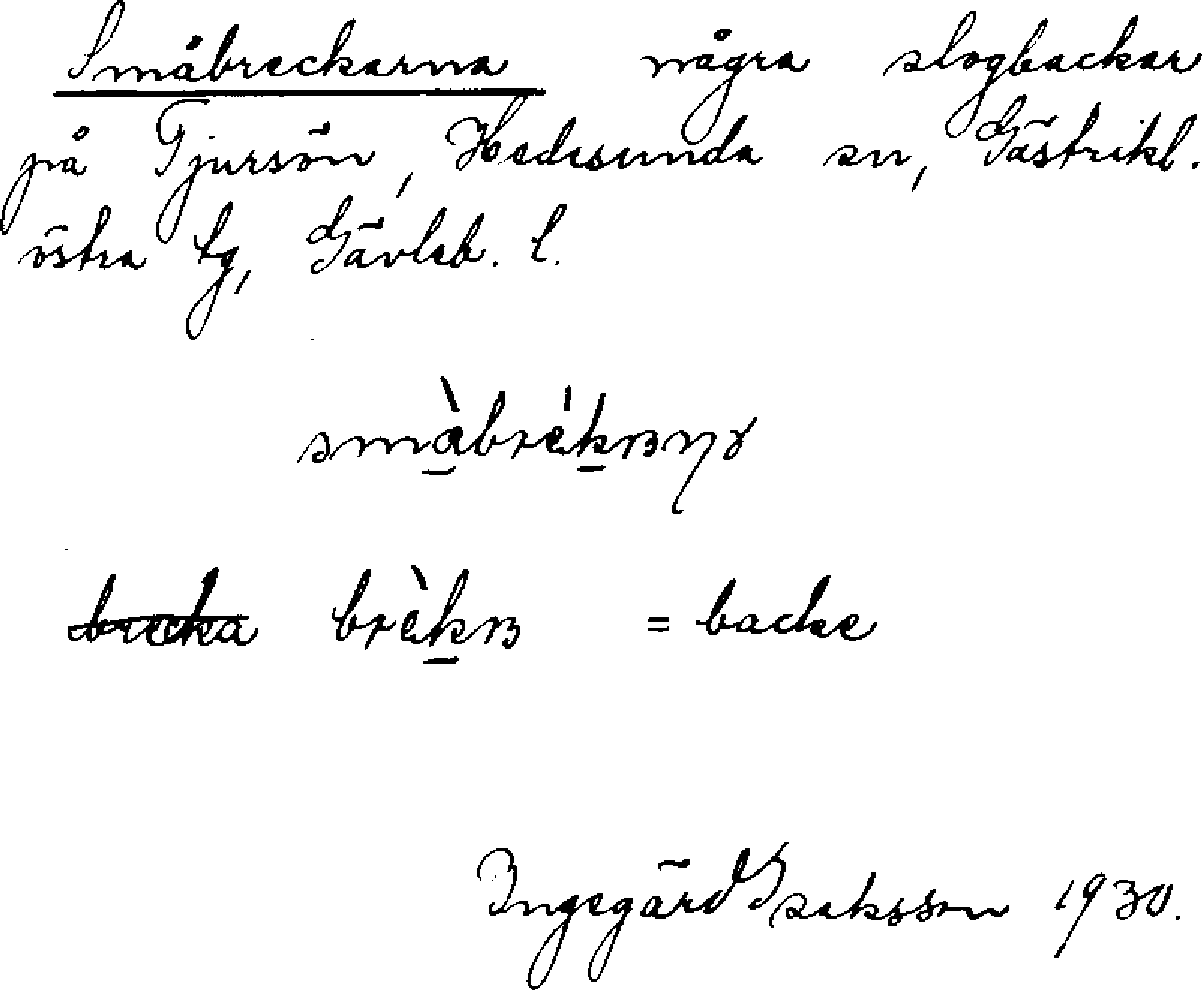 Småbreckarna några slogbackar
på Tjursön, Hedesunda sn, Gästrikl.
östra tg, Gävleb. l.
= backe
Ingegärd Isaksson 1930.